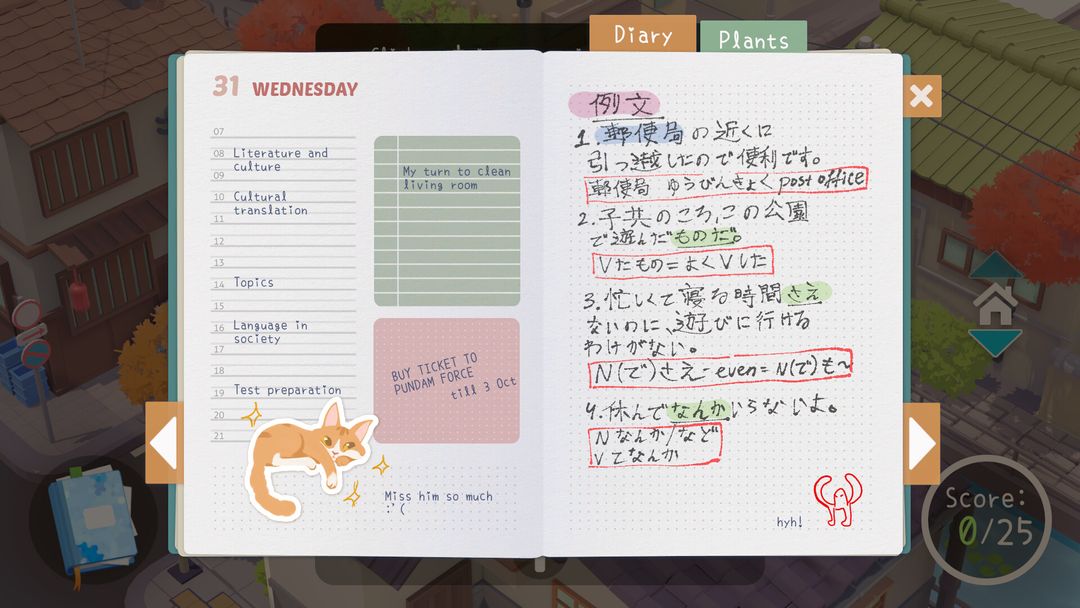 Diary
Plants
31 WEDNESDAY
07
08 Literature and
culture
09
10 Cultural
translation
11
12
13
14 Topics
15
16 Language in
society
17
18
19 Test preparation
20
21
My turn to clean
living room
BUY TICKET TO
PUNDAM FORCE
till 3 Oct
Miss him so much
:'(
例文
1. 郵便局の近くに
引っ越したので便利です。
郵便局 ゆうびんきょく post office
2. 子共のころ、この公園
で遊んだものだ。
Vたもの = よくVした
3. 忙しくて寝る時間さえ
ないのに、遊びに行ける
わけがない。
N(で)さえ - even = N(で)も~
4. 休んでなんかいらないよ。
Nなんか/など
Vてなんか
hyh!
Score:
0/25